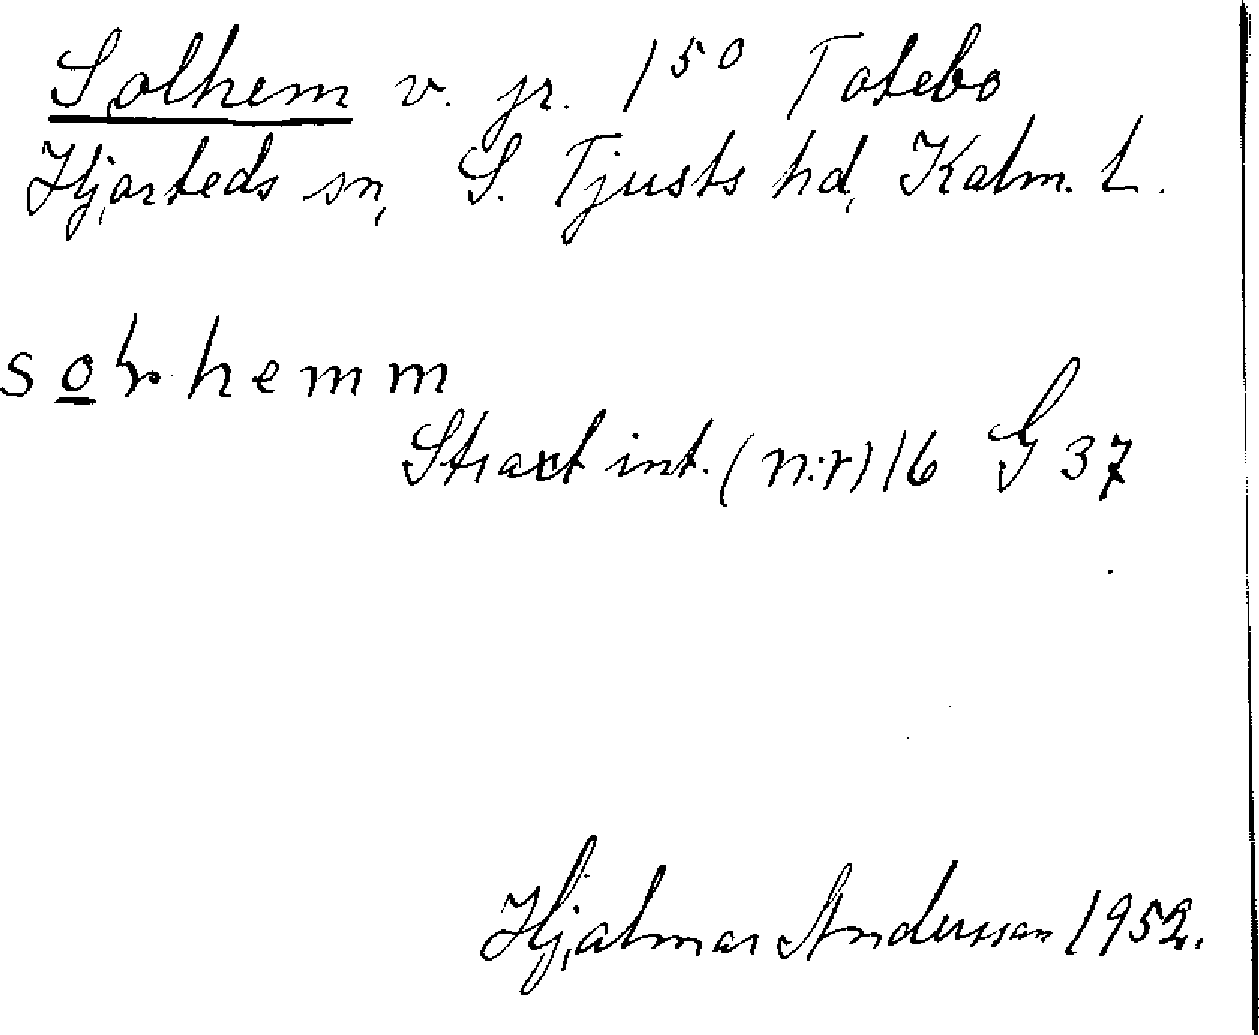 Solhem v. jr. 1⁵⁰ Totebo
Hjorteds sn, S. Tjusts hd, Kalm. L.
hemm
Straxt int. (n:r) 16 G 37
Hjalmar Andersson 1952.